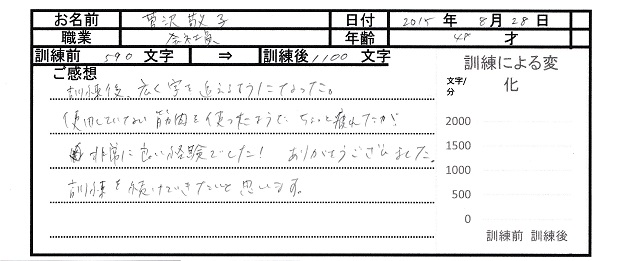 お名前 菅沢 敬子 日付 2015 年 8月 28 日
職業 会社員 年齢 48 才
訓練前 590 文字 ⇒ 訓練後 1100 文字
ご感想
訓練後、広く字を追えるようになった。
使用していない筋肉を使ったようで、ちょっと疲れたが
非常に良い経験でした! ありがとうございました。
訓練を続けていきたいと思います。
訓練による変
化
文字/
分
2000
1500
1000
500
0
訓練前 訓練後